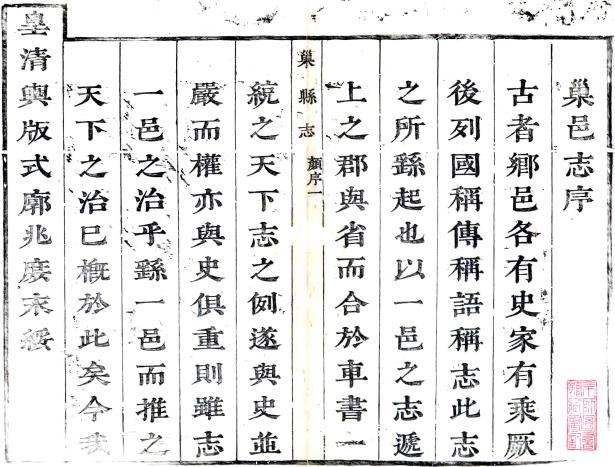 巢邑志序
古者鄉邑各有史家有乘厥
後列國稱傳稱語稱志此志
之所繇起也以一邑之志遞
上之郡與省而合於車書一
巢縣志 顏序一
統之天下志之例遂與史並
嚴而權亦與史俱重則雖志
一邑之治乎繇一邑而推之
天下之治已概於此矣今我
皇清輿版式廓兆庶未綏